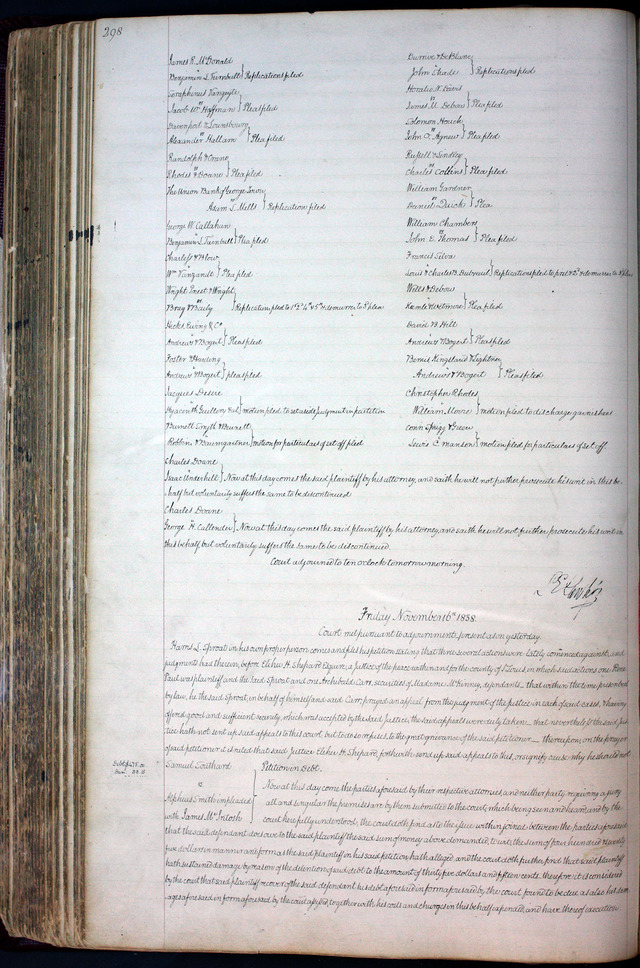 298
James R. McDonald
Benjamin L. Turnbull } Replications filed
Seraphinus Vangeyle
Jacob Wm Hoffman } Pleas filed
Davenport & Lounsbury
Alexander Hallam } Plea filed
Randolph & Crane
Rhodes & Doane } Plea filed
The Union Bank of George Town
Adam L. Mills } Replication filed
George W. Callahan
Benjamin L. Turnbull } Plea filed
Charless & Blow
Wm Vanzandt } Plea filed
Wright Street & Wright
Bray & Baily } Replication filed to 1st 2d 4th & 5th & demurrer to 3d plea
Hicks Ewing & Co
Andrews & Bogert } Pleas filed
Foster & Harding
Andrews & Bogert } pleas filed
Jacques Desire
Hyacinth Guillory } motion filed to set aside Judgment in partition
Burnett Smyth & Burnett
Robbins & Baumgartner } motion for particulars of set off filed
John Skade } Replications filed
Horatio N. Davis
James M. Debow } Plea filed
Solomon Houck
John Agnew } Plea filed
Russell & Lindley
Charles Collins } Plea filed
William Gardner
Daniel Quick } Plea
William Chambers
John E. Thomas } Plea filed
Francis Silva
Louis & Charles B. Dubreuil } Replications filed to first & 2d & demurrer to
Wills & Debow
Plea filed
David B. Hill
Andrews & Bogert } Pleas filed
Bemis Kingsland & Lightner
Andrews & Bogert } Pleas filed
Christopher Rhodes
William Moore } motion filed to discharge garnishees
Conn Sprigg & Green
Lewis C. Manson } motion filed for particulars of set off.
Charles Doane
Isaac Underhill } Now at this day comes the said plaintiff by his attorney, and saith he will not further prosecute his suit in this be-
half but voluntarily suffers the same to be discontinued
Charles Doane
George H. Callender } Now at this day comes the said plaintiff by his attorney, and saith he will not further prosecute his suit in
this behalf, but voluntarily suffers the same to be discontinued.
Court adjourned to ten oclock tomorrow morning.
Friday November 16th 1838.
Court met pursuant to adjournment, present as on yesterday.
Harris L. Sproat in his own proper person comes and files his petition stating that three several actions were lately commenced against, and
judgments had therein, before Elihu H. Shepard Esquire, a Justice of the peace within and for the county of St Louis in which said actions one René
Paul was plaintiff and the said Sproat and one Archibald Carr, securities of Madame McKinney, defendants that within the time prescribed
by law, he the said Sproat, in behalf of himself and said Carr, prayed an appeal from the judgment of the Justice in each of said cases, & having
offered good and sufficient security, which was accepted by the said Justice, the said appeals were duly taken that nevertheless the said Jus-
tice hath not sent up said appeals to this court but to do so refuses, to the great grievance of the said petitioner thereupon, on the prayer
of said petitioner it is ruled that said Justice Elihu H. Shepard, forthwith send up said appeals to this, or signify cause why he should not
Samuel Southard Petition in Debt.
Now at this day come the parties aforesaid by their respective attornies, and neither party requiring a jury
Alpheus Smith impleaded
with James McIntosh
all and singular the premises are by them submitted to the court, which being seen and heard and by the
court here fully understood, the court doth find as to the issue within joined between the parties aforesaid
that the said defendant does owe to the said plaintiff the said sum of money above demanded, to wit, the sum of four hundred & seventy
five dollars in manner and form as the said plaintiff in his said petition hath alleged and the court doth further find that said plaintiff
hath sustained damage by reason of the detention of said debt to the amount of thirty five dollars and fifteen cents, therefore it is considered
by the court that said plaintiff recover of the said defendant his debt aforesaid in form aforesaid by the court found to be due as also his dam-
ages aforesaid in form aforesaid by the court assessed, together with his costs and charges in this behalf expended, and have thereof execution